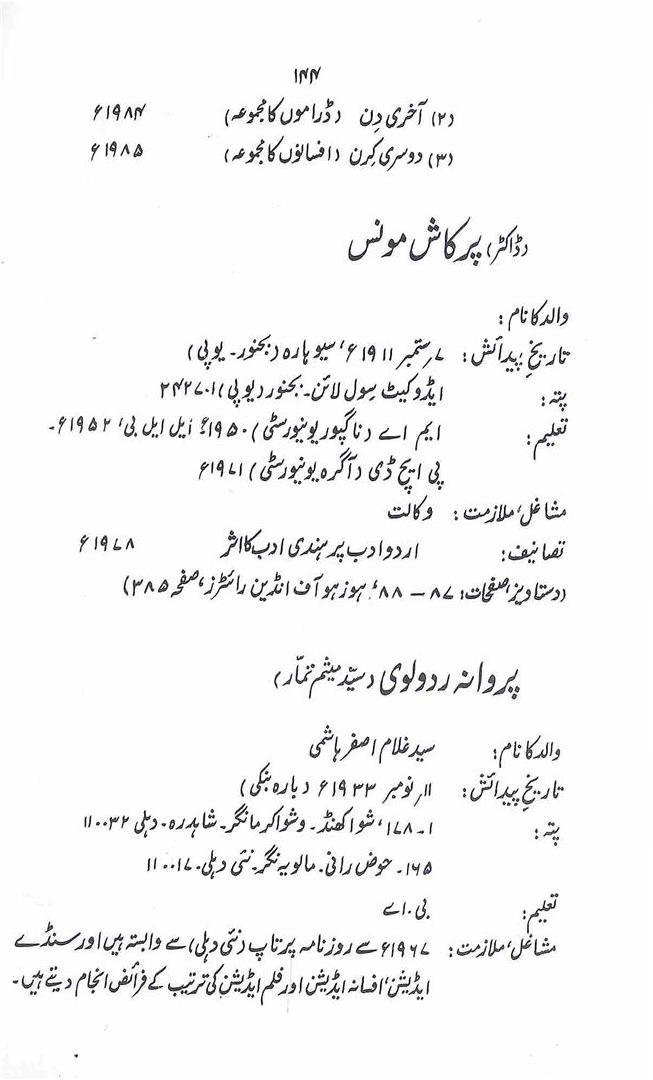 ۱۴۴
(۲) آخری دِن (ڈراموں کا مجموعہ) ۱۹۸۴ء
(۳) دوسری کِرن (افسانوں کا مجموعہ) ۱۹۸۵ء
(ڈاکٹر) پرکاش مونس
والد کا نام:
تاریخِ پیدائش: ۷؍ستمبر ۱۹۱۱ء، سیوہارہ (بجنور۔ یوپی)
پتہ: ایڈوکیٹ سِول لائن۔ بجنور (یوپی) ۲۴۲۷۰۱
تعلیم: ایم اے (ناگپور یونیورسٹی) ۱۹۵۰ء؛ ایل ایل بی، ۱۹۵۲ء۔
پی ایچ ڈی (آگرہ یونیورسٹی) ۱۹۷۱ء
مشاغل، ملازمت: وکالت
تصانیف: اردو ادب پر ہندی ادب کا اثر ۱۹۷۸ء
(دستاویز، صفحات: ۸۷ – ۸۸، ہوز ہو آف انڈین رائٹرز، صفحہ ۳۸۵)
پروانہ ردولوی (سیّد میثم تمّار)
والد کا نام: سید غلام اصغر ہاشمی
تاریخِ پیدائش: ۱۱؍ نومبر ۱۹۳۳ء (بارہ بنکی)
پتہ: ۱۔۱۷۸، شوا کھنڈ۔ وشوا کرما نگر۔ شاہدرہ۔ دہلی ۱۱۰۰۳۲
۱۶۵۔ حوض رانی۔ مالویہ نگر۔ نئی دہلی۔ ۱۱۰۰۱۷
تعلیم: بی۔ اے
مشاغل، ملازمت: ۱۹۶۷ء سے روزنامہ پرتاپ (نئی دہلی) سے وابستہ ہیں اور سنڈے
ایڈیشن، افسانہ ایڈیشن اور فلم ایڈیشن کی ترتیب کے فرائض انجام دیتے ہیں۔